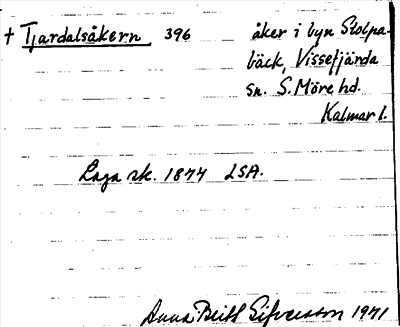 + Tjardalsåkern 396 åker i byn Stolpa-
bäck, Vissefjärda
sn. S. Möre hd.
Kalmar l.
Laga sk. 1877 LSA.
Anna-Britt Sifversson 1971